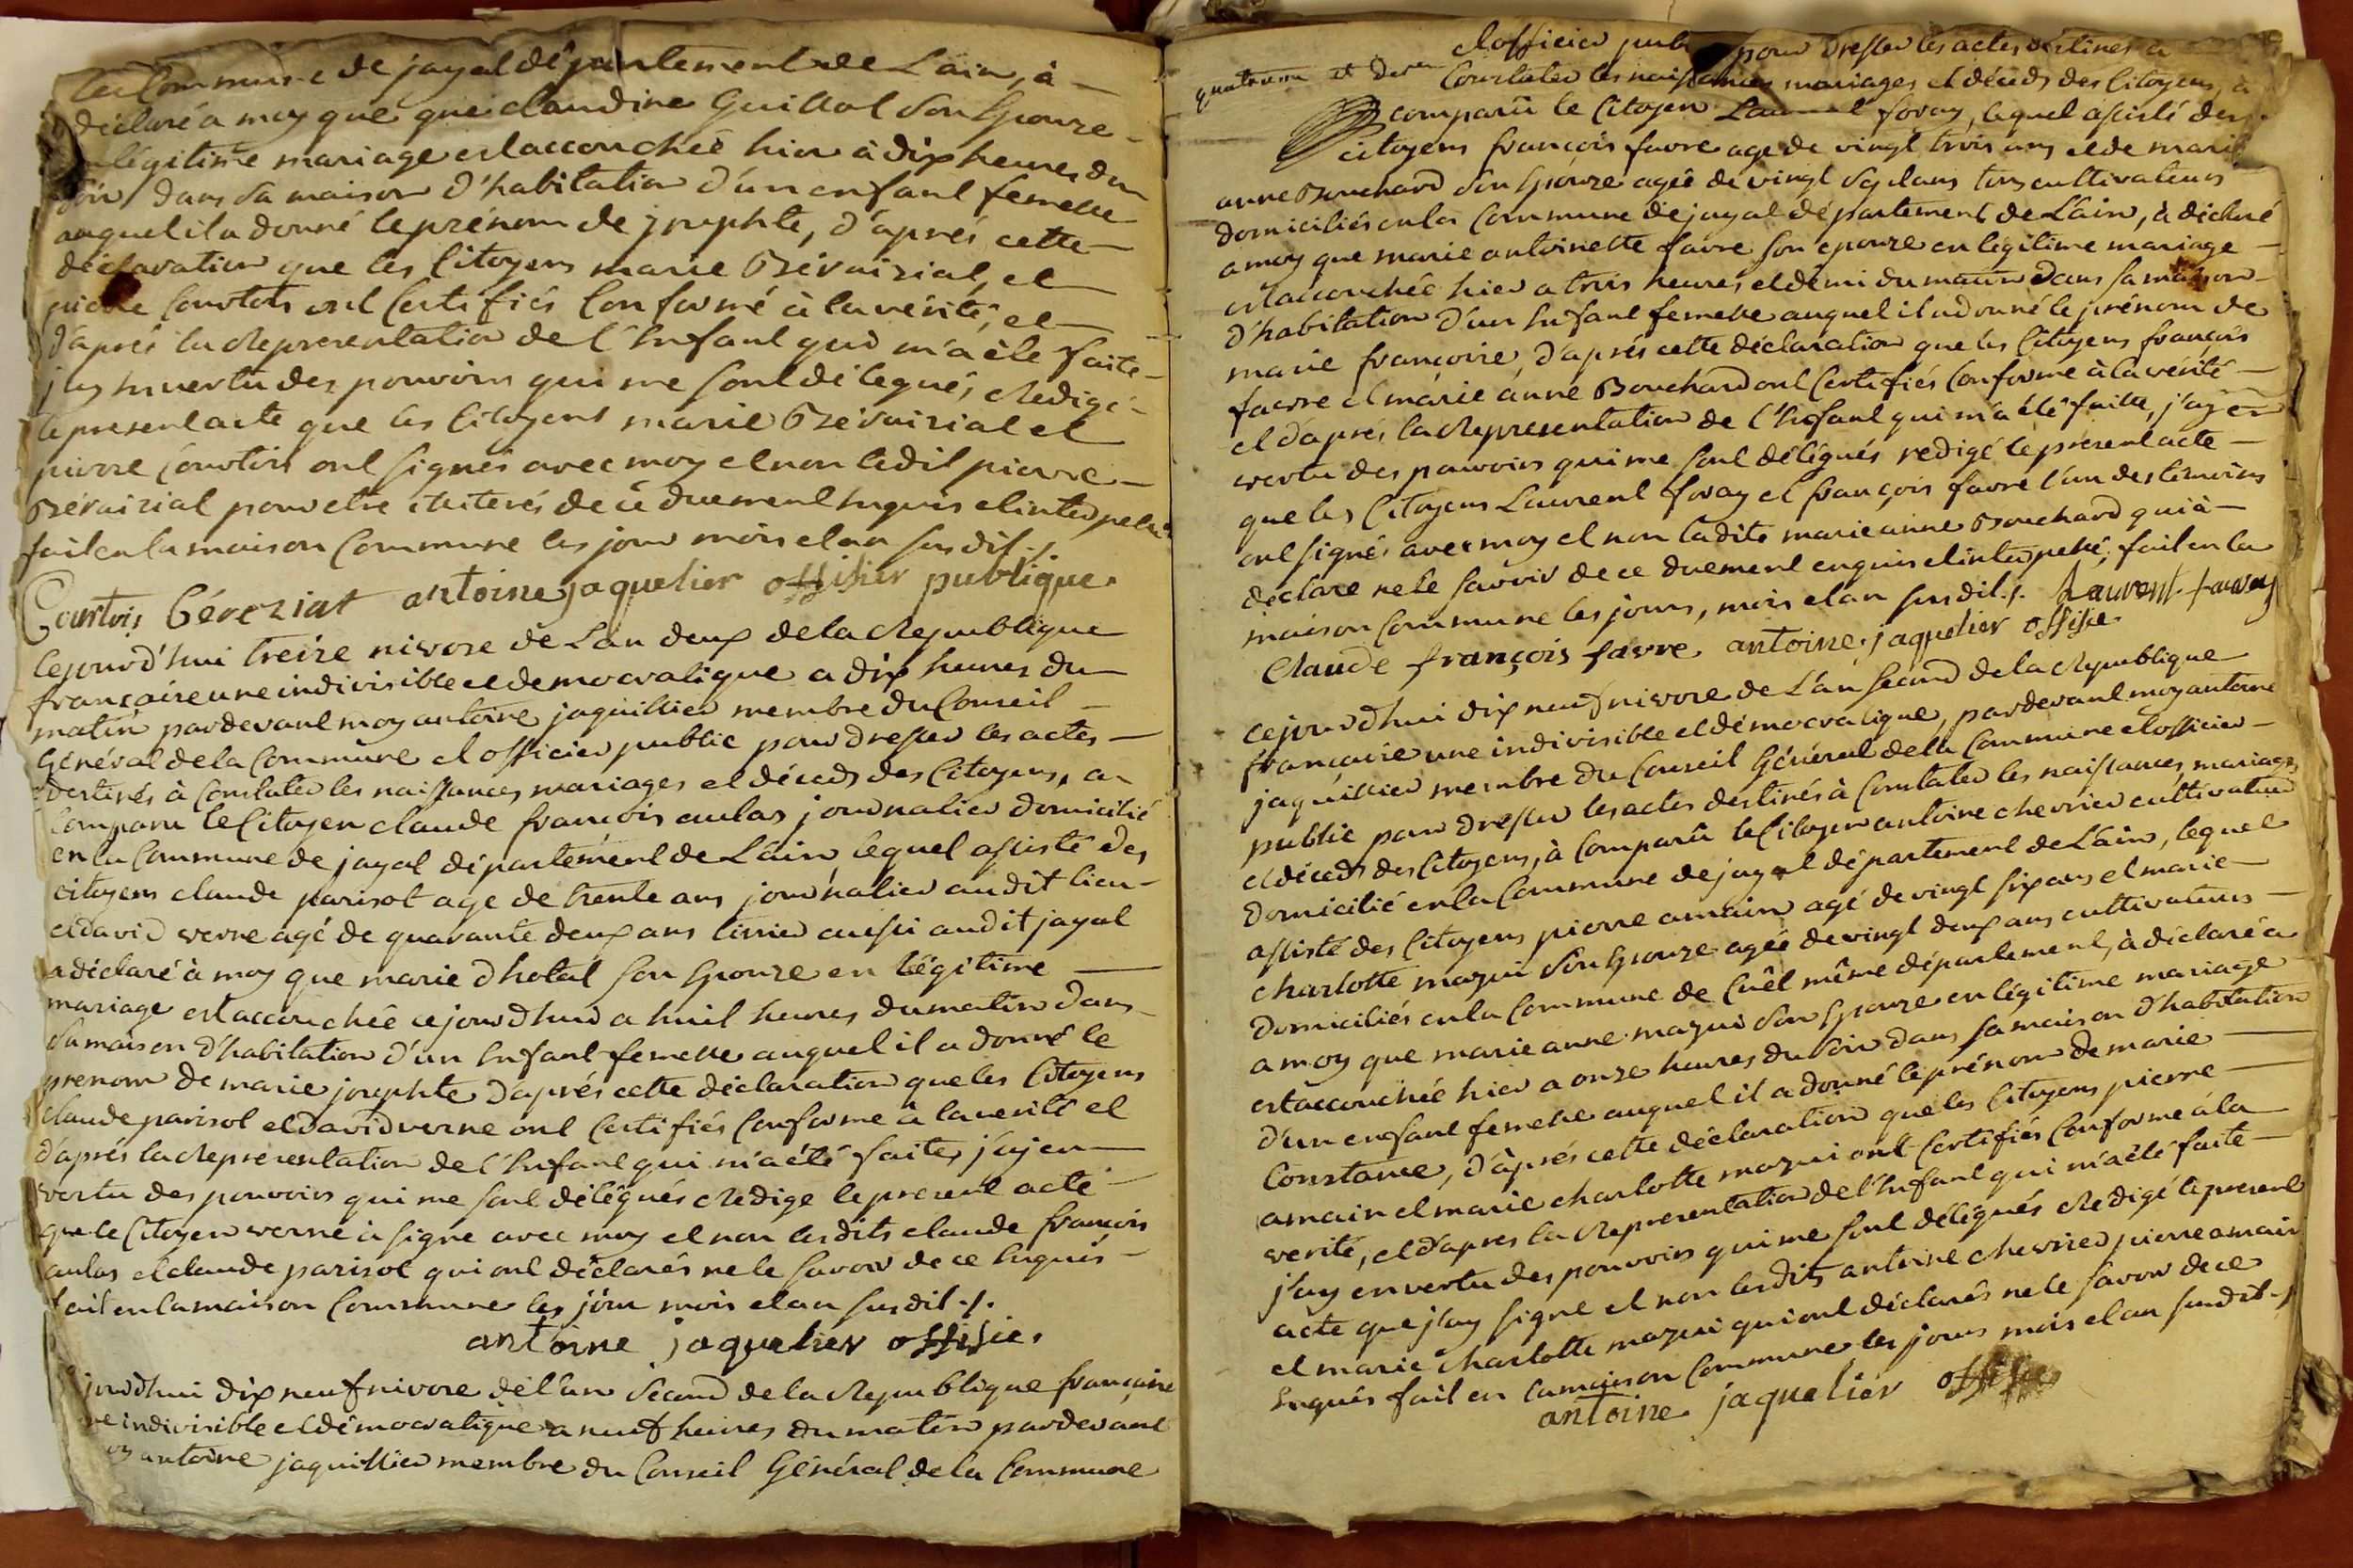 la Commune de jayat département de L'ain, à
déclaré a moy que que claudine Guillot son Epouze
légitime mariage est accouchée hier à dix heures du
soir dans sa maison d'habitation d'un enfant femelle
auquel il a donné le prénom de josephte, d'après cette
déclaration que les Citoyens marie Bévairiat, et
pierre Courtois ont Certifiés Conformé à la vérité, et
d'après la Representation de l'Enfant qui m'a été faite
j'ay en vertu des pouvoirs qui me sont délégués, Redigé
le present acte que les Citoyens marie Bévairiat et
pierre Courtois ont signés avec moy et non ledit pierre
Bévairiat pour etre de ce duement Enquis et interpellé
fait en la maison Commune les jour mois et an susdit ./.
Courtois Béveziat antoine jaquelier offisier publique.
Cejourd'hui treize nivose de L'an deux de la Republique
françaire une indivisible et democratique a dix heures du
matin pardevant moy antoine jaquillier membre du Conseil
Général de la Commune et officier public pour dresser les actes
destinés à Constater les naissances mariages et déceds des Citoyens, a
Comparu le Citoyen claude françois aulas journalier domicilié
en la Commune de jayat département de L'ain lequel assisté des
citoyens claude parisot age de trente ans journalier audit lieu
et david verne agé de quarante deux ans tissier aussi audit jayat
a déclaré à moy que marie dhotal son Epouze en légitime
mariage est accouchée cejourdhui a huit heures du matin dans
sa maison d'habitation d'un Enfant femelle auquel il a donné le
prenom de marie josephte d'après cette déclaration que les Citoyens
claude parisot et david verne ont Certifiés Conforme à la verité et
d'après la Representation de l'Enfant qui m'a été faite, j'ay en
vertu des pouvoirs qui me sont délégués Redige le present acte
que le Citoyen verne a signe avec moy et non lesdits claude françois
aulas et claude parisot qui ont déclarés ne le savoir de ce Enquis
fait en la maison Commune les jour mois et an susdit ./.
antoine jaquelier offisie.
jourdhui dix neuf nivose de l'an second de la Republique françaire
une indivisible et démocratique a neuf heures du matin pardevant
moy antoine jaquillier membre du Conseil Général de la Commune
et officier pub pour dresser les actes destinés a
Constater les naissances mariages et déceds des Citoyens, à
comparû le Citoyen Laurent foray, lequel assisté des
citoyens françois favre age de vingt trois ans et de marie
anne Bouchard son Epouze agée de vingt sept ans tous cultivateurs
domiciliés en la Commune de jayat département de L'ain, à déclaré
a moy que marie antoinette favre son epouze en légitime mariage
est accouchée hier a trois heures et demi du matin dans sa maison
d'habitation d'un Enfant femelle auquel il a donné le prénom de
marie françoise, d'après cette déclaration que les Citoyens françois
favre et marie anne Bouchard ont Certifiés Conforme à la vérité
et d'après la Representation de l'Enfant qui m'a été faitte, j'ay en
vertu des pouvoirs qui me sont délégués redigé le present acte
que les Citoyens Laurent foray et françois favre l'un des témoins
ont signés avec moy et non ladite marie anne Bouchard qui à
déclare ne le savoir de ce duement enquis et interpellé, fait en la
maison Commune les jours, mois et an susdit ./. Laurent
Claude françois favre antoine jaquelier offisie.
Cejourdhui dix neuf nivose de L'an second de la Republique
françaire une indivisible et démocratique, pardevant moy antoine
jaquillier membre du Conseil Général de la Commune et officier
public pour dresser les actes destinés à Constater les naissances mariages
et décèds des Citoyens, à Comparû le Citoyen antoine chevrier cultivateur
domicilié en la Commune de jayat département de L'ain, lequel
assisté des Citoyens pierre amain agé de vingt six ans et marie
charlotte mazui son Epouze agée de vingt deux ans cultivateurs
domiciliés en la Commune de Cuêt même département, à déclaré a
a moy que marie anne mazui son Epouze en légitime mariage
est accouchée hier a onze heures du soir dans sa maison d'habitation
d'un enfant femelle auquel il a donné le prénom de marie
Constance, d'après cette déclaration que les Citoyens pierre
amain et marie charlotte mazui ont Certifiés Conforme à la
verité, et d'apres la Representation de l'Enfant qui m'a été faite
j'ay en vertu des pouvoirs qui me sont délégués Redigé le present
acte que j'ay signe et non lesdits antoine chevrier pierre amain
et marie charlotte mazui qui ont déclarés ne le savoir de ce
Enquis fait en la maison Commune les jours mois et an susdit ./.
antoine jaquelier offisie